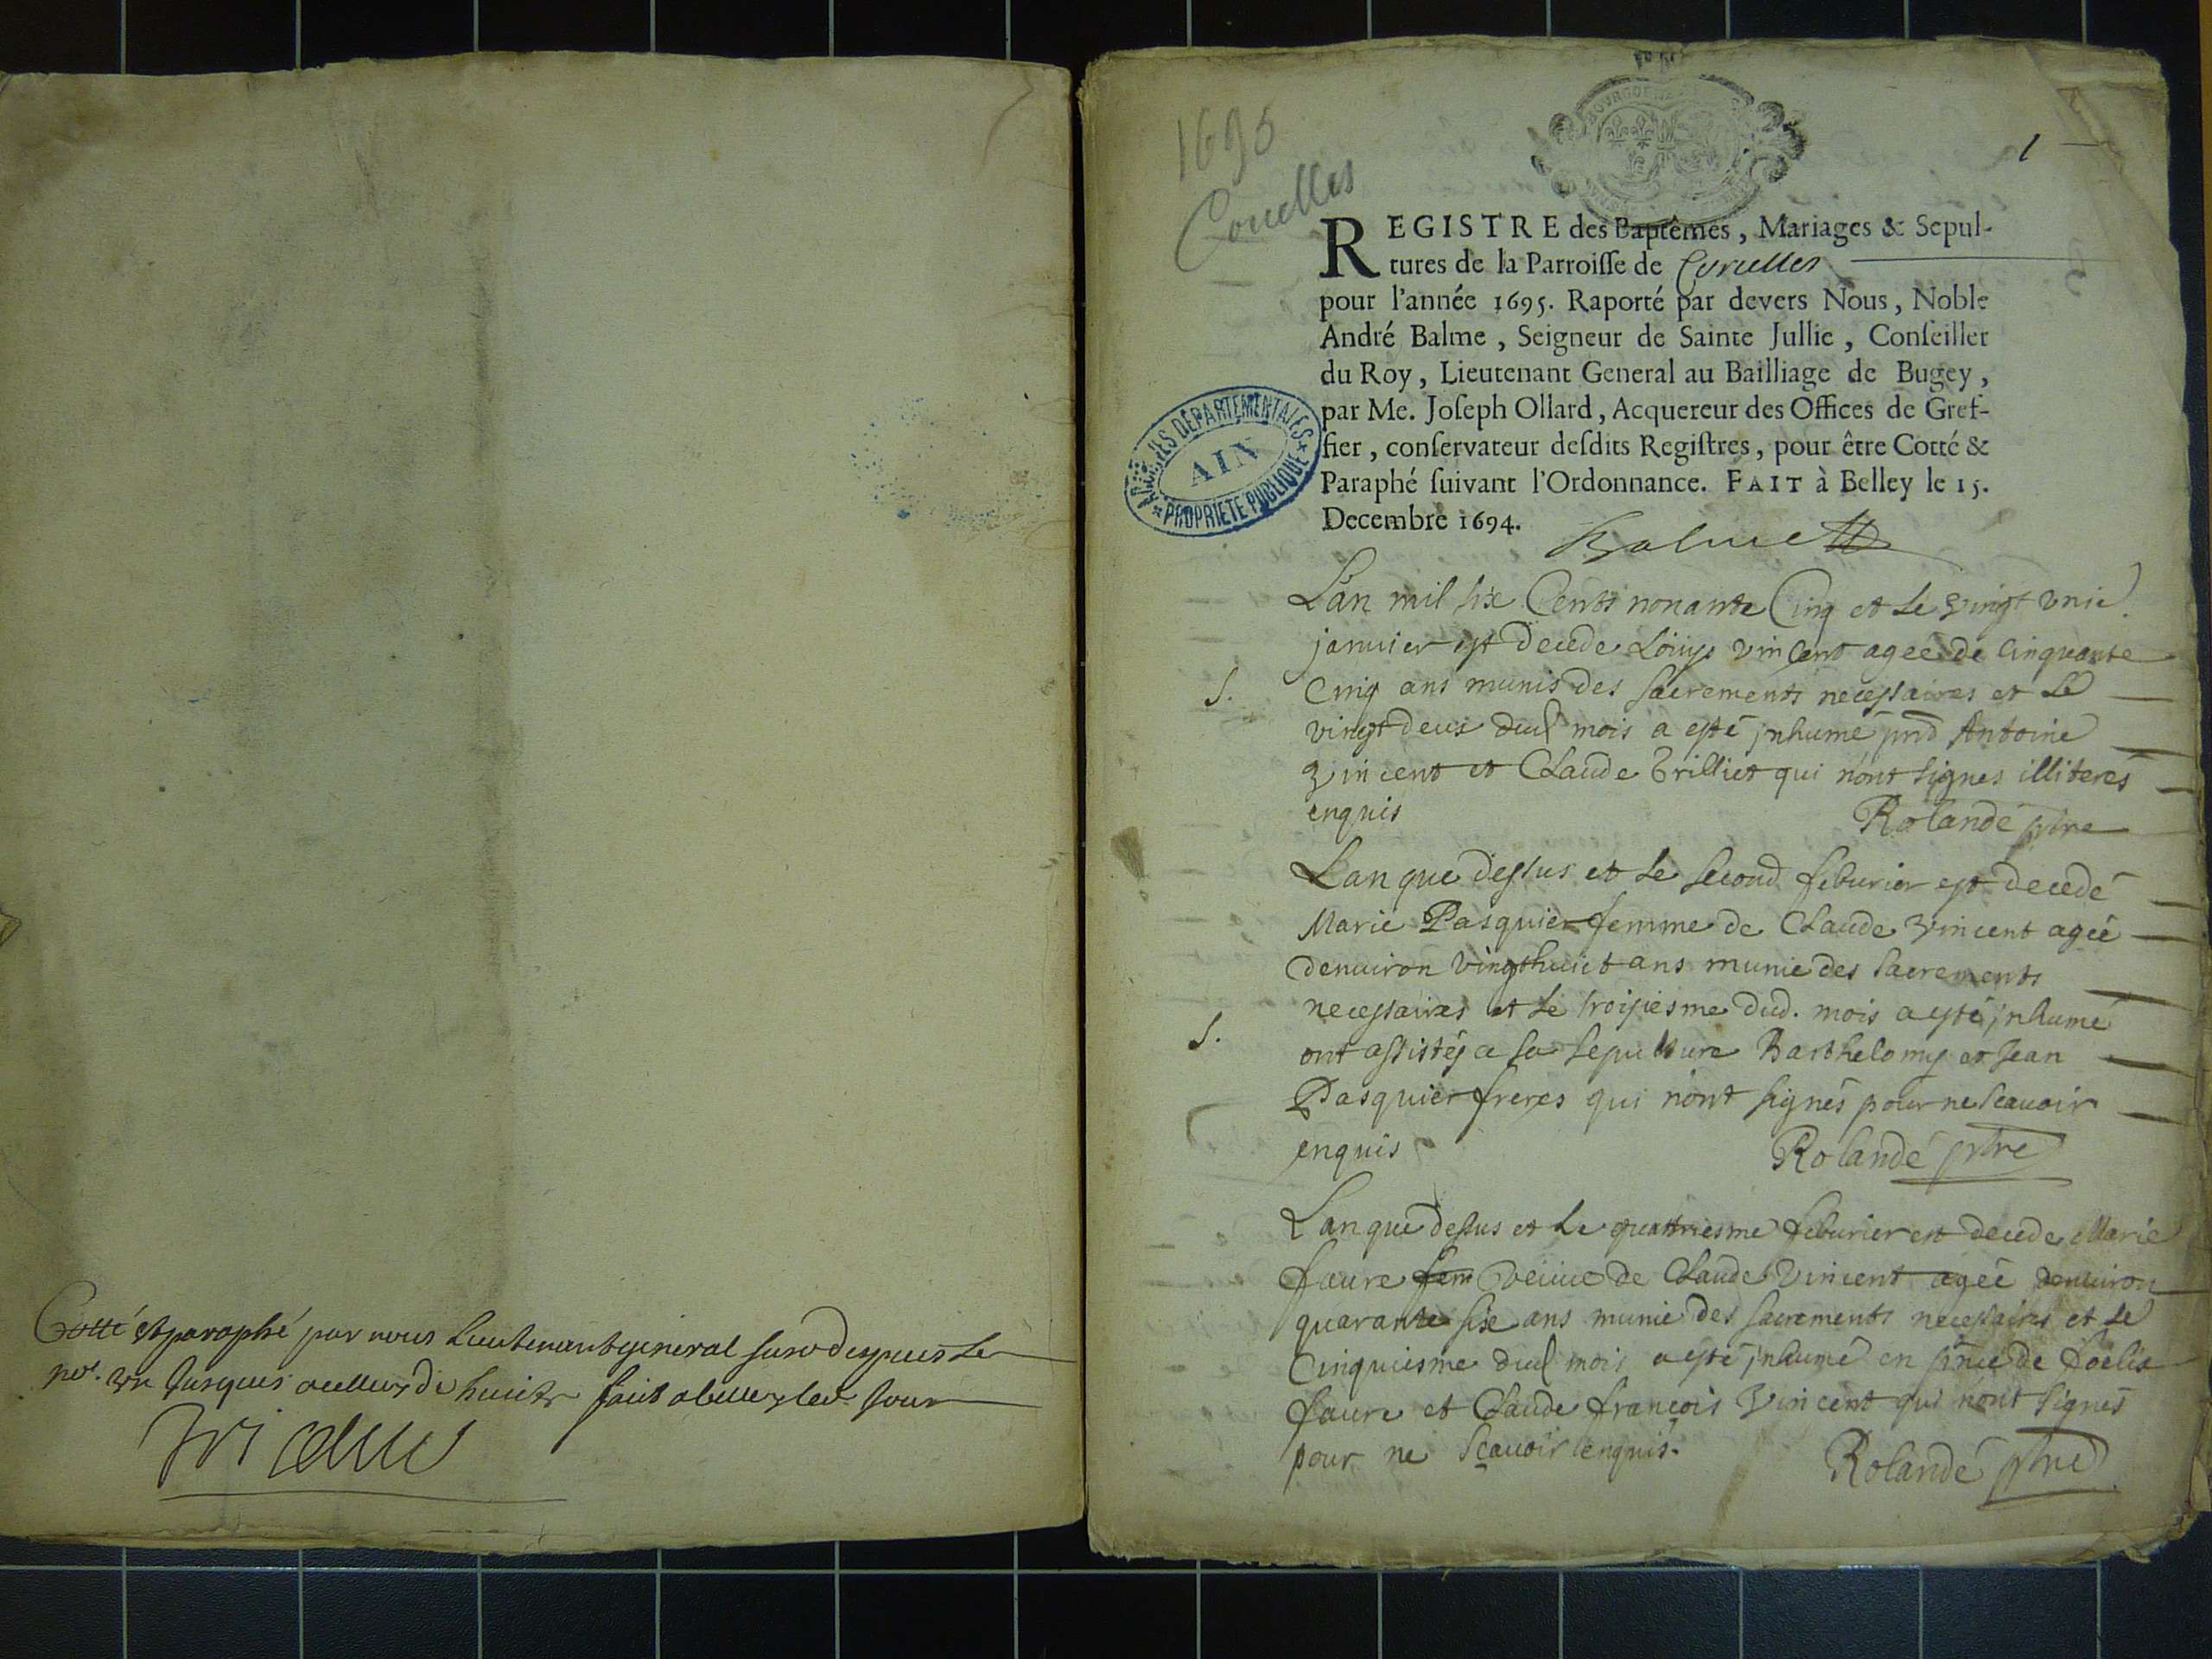 Cotté et paraphé par nous Lieutenant general susd despuis le
no. un Jusques a celluy de huict fait a belley led. Jour
1695
Corcelles
1
BOURGOGNE
REGISTRE des Baptêmes, Mariages & Sepul-
tures de la Parroisse de Corcelles
pour l'année 1695. Raporté par devers Nous, Noble
André Balme, Seigneur de Sainte Jullie, Conseiller
du Roy, Lieutenant General au Bailliage de Bugey,
par Me. Joseph Ollard, Acquereur des Offices de Gref-
fier, conservateur desdits Registres, pour être Cotté &
Paraphé suivant l'Ordonnance. FAIT à Belley le 15.
Decembre 1694.
ARCHIVES DÉPARTEMENTALES
AIN
PROPRIETE PUBLIQUE
Balme
L'an mil six Cents nonante Cinq et le vingt unie
januier est decede Loüys vincent ageé de Cinquante
S. Cinq ans munis des sacrements necessaires et le
vingt deux dud mois a esté jnhumé pnd Antoine
Vincent et Claude Trilliet qui n'ont signes illiterés
enquis
Rolandé ptre
L'an que dessus et le second feburier est decedé
Marie Pasquier femme de Claude Vincent ageé
denuiron vingthuict ans munie des sacrements
necessaires et le troisiesme dud. mois a esté jnhumé
S. ont assistéz a sa sepulture Barthelomy et Jean
Pasquier freres qui n'ont signés pour ne scauoir
enquis
Rolandé ptre
L'an que dessus et le quattriesme feburier est decede Marie
faure fem veiiue de Claude Vincent ageé denuiron
quarante six ans munie des sacrements necessaires et le
Cinquiesme dud mois a esté jnhumé en pnce de foelix
faure et Claude françois Vincent qui n'ont signés
pour ne sçauoir enquis.
Rolandé ptre